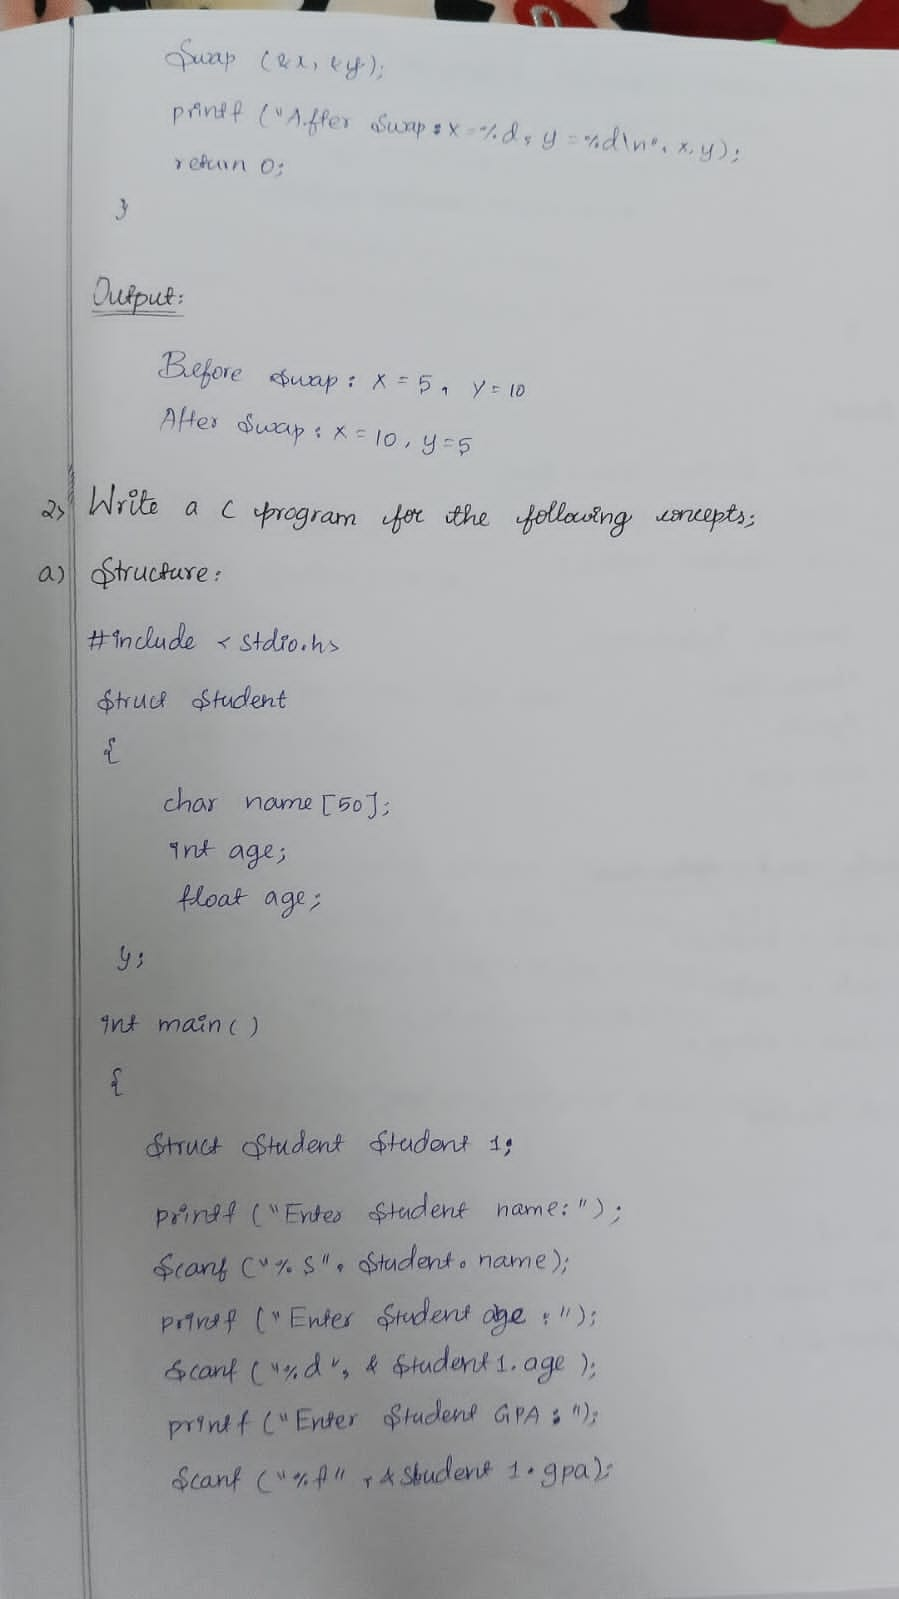 Swap (&x, &y);
printf ("After Swap: x=%d, y=%d\n", x, y);
return 0;
}
Output:
Before Swap: x = 5, y = 10
After Swap: x = 10, y = 5
2) Write a C program for the following concepts;
a) Structure:
#include <stdio.h>
Struct Student
{
char name [50];
int age;
float age;
y;
int main ( )
{
Struct Student Student 1;
printf ("Enter Student name:");
Scanf ("%s", Student. name);
printf ("Enter Student age :");
Scanf ("%d", & Student1. age );
printf ("Enter Student GPA : ");
Scanf ("%f" , & Student 1. gpa);